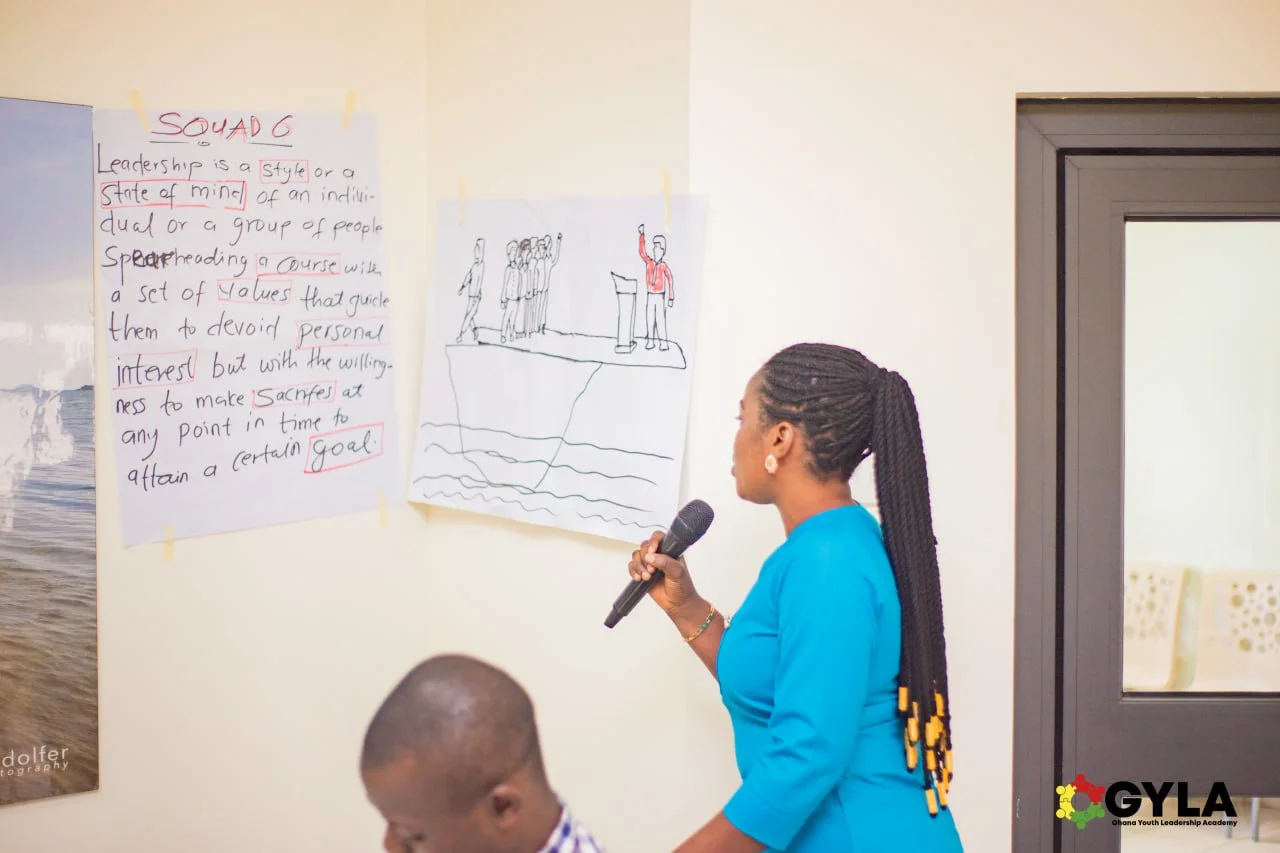 SQUAD 6
Leadership is a style or a
state of mind of an indivi-
dual or a group of people
Spearheading a course with
a set of values that guide
them to devoid personal
interest but with the willing-
ness to make Sacrifes at
any point in time to
attain a certain goal.
dolfer
tography
GYLA
Ghana Youth Leadership Academy